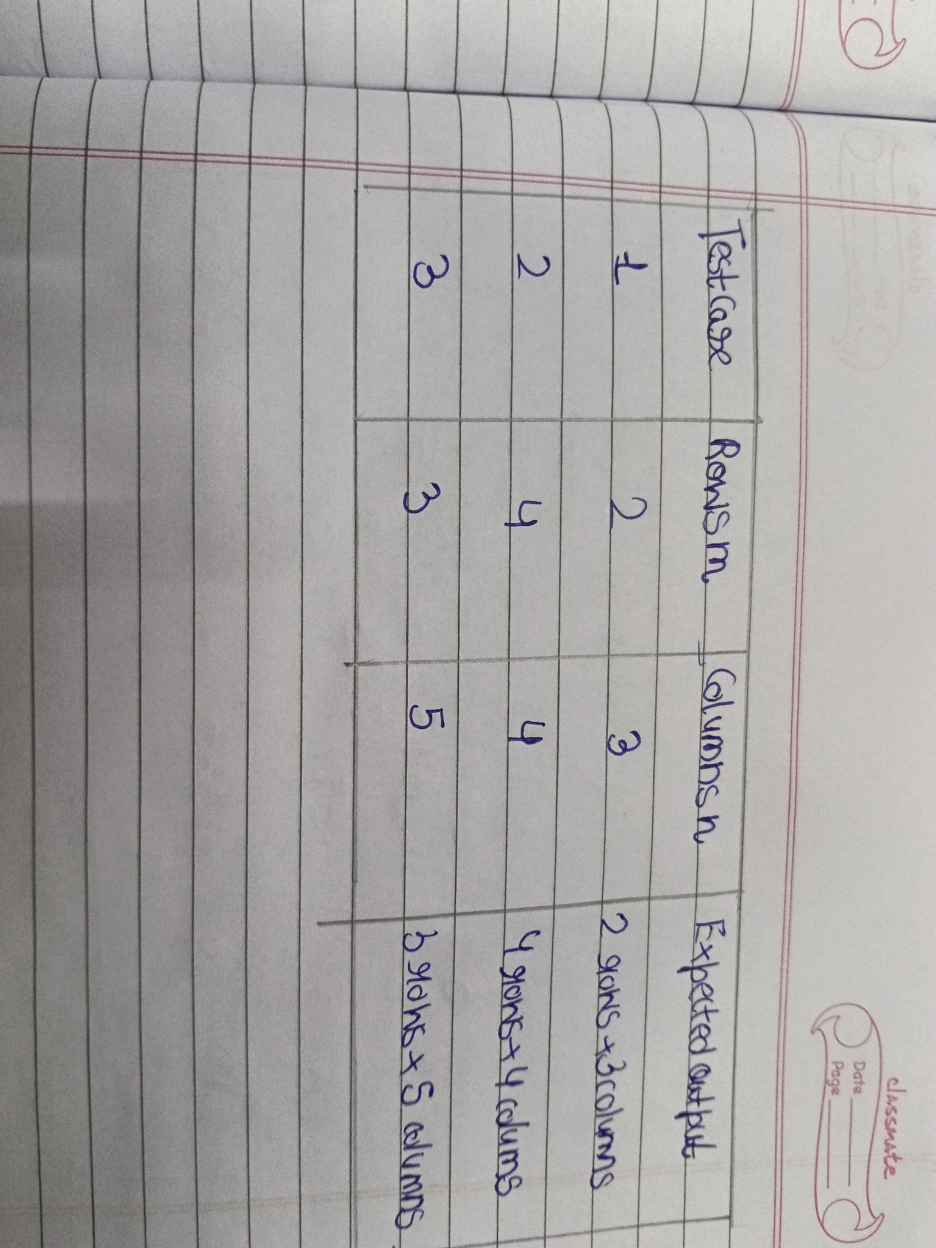 classmate
Date
Page
Testcase Rows m Columns n Expected output
1 2 3 2 rows × 3 columns
2 4 4 4 rows × 4 colums
3 3 5 3 rows × 5 columns